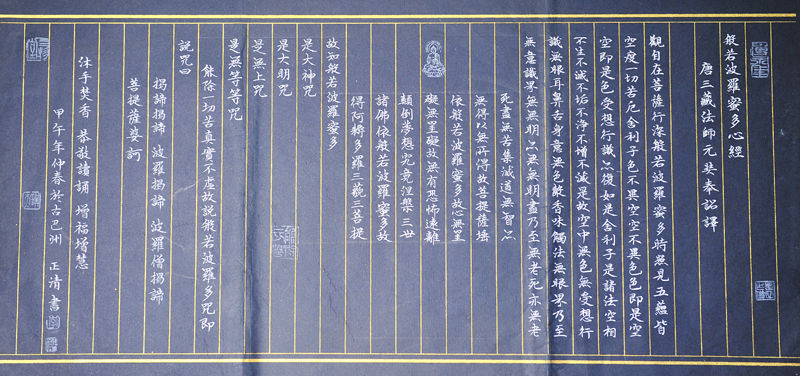 般若波羅蜜多心經
唐三藏法師元奘奉詔譯
觀自在菩薩行深般若波羅蜜多時照見五蘊皆
空度一切苦厄舍利子色不異空空不異色色即是空
空即是色受想行識亦復如是舍利子是諸法空相
不生不滅不垢不淨不增不減是故空中無色無受想行
識無眼耳鼻舌身意無色聲香味觸法無眼界乃至
無意識界無無明亦無無明盡乃至無老死亦無老
死盡無苦集滅道無智亦
無得以無所得故菩提薩埵
依般若波羅蜜多故心無罣
礙無罣礙故無有恐怖遠離
顛倒夢想究竟涅槃三世
諸佛依般若波羅蜜多故
得阿耨多羅三藐三菩提
故知般若波羅蜜多
是大神咒
是大明咒
是無上咒
是無等等咒
能除一切苦真實不虛故說般若波羅多咒即
說咒曰
揭諦揭諦 波羅揭諦 波羅僧揭諦
菩提薩婆訶
沐手焚香 恭敬讀誦 增福增慧
甲午年仲春於古巴州 正清書